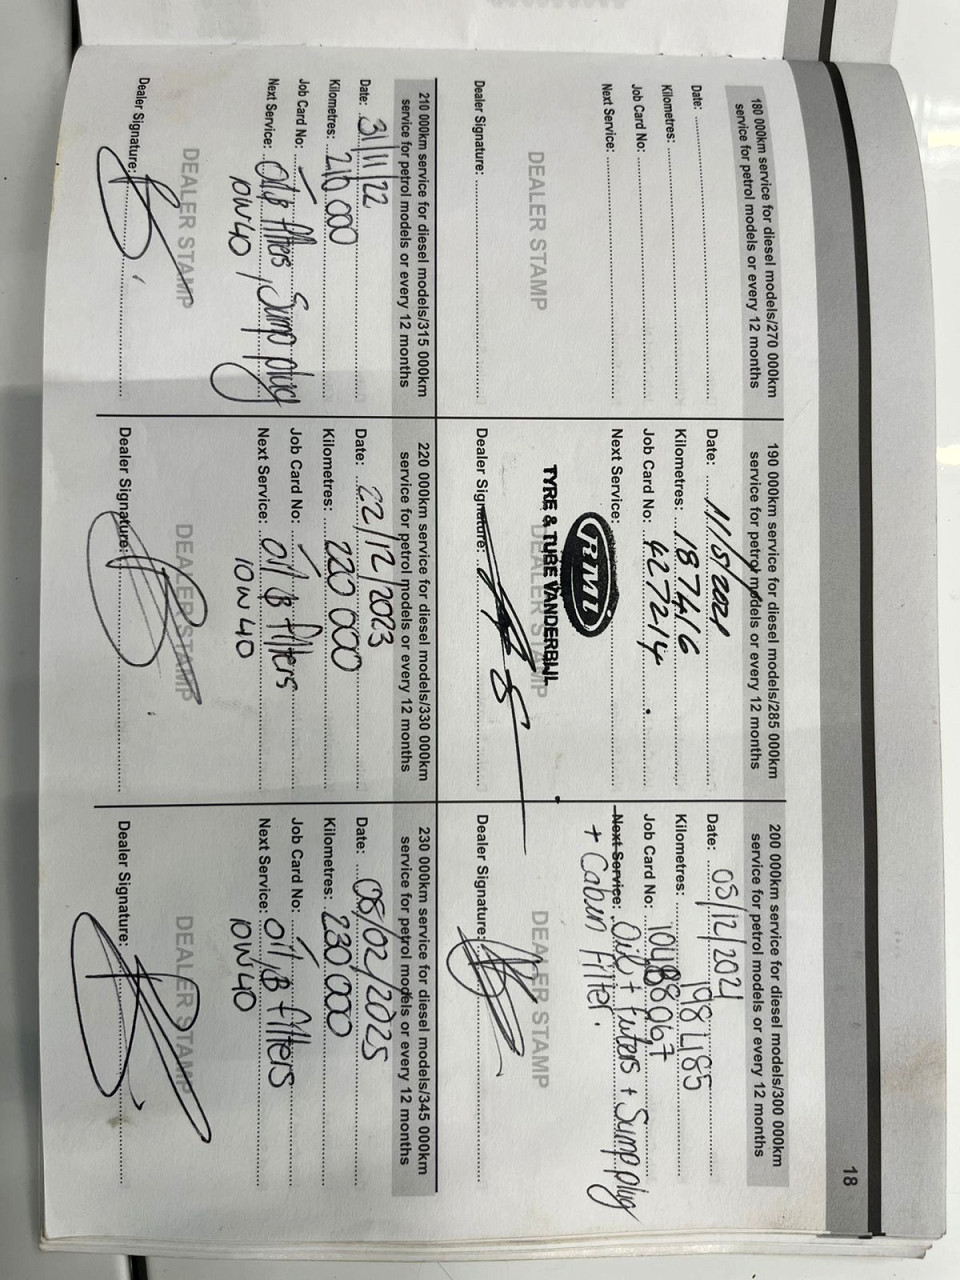 18
180 000km service for diesel models/270 000km
service for petrol models or every 12 months
Date:
Kilometres:
Job Card No:
Next Service:
DEALER STAMP
Dealer Signature:
190 000km service for diesel models/285 000km
service for petrol models or every 12 months
Date: 11/5/2021
Kilometres: 187416
Job Card No: 427214
Next Service:
RMI
TYRE & TUBE VANDERBIJL
DEALER STAMP
Dealer Signature:
200 000km service for diesel models/300 000km
service for petrol models or every 12 months
Date: 08/12/2021
Kilometres: 198485
Job Card No:
Next Service: Oil + Filters + Sump plug
+ Cabin Filter.
DEALER STAMP
Dealer Signature:
210 000km service for diesel models/315 000km
service for petrol models or every 12 months
Date: 31/11/22
Kilometres: 210 000
Job Card No:
Next Service: Oil & filters, Sump plug
10W40
DEALER STAMP
Dealer Signature:
220 000km service for diesel models/330 000km
service for petrol models or every 12 months
Date: 22/12/2023
Kilometres: 220 000
Job Card No:
Next Service: Oil & filters
10W40
DEALER STAMP
Dealer Signature:
230 000km service for diesel models/345 000km
service for petrol models or every 12 months
Date: 08/02/2025
Kilometres: 230 000
Job Card No:
Next Service: Oil & filters
10W40
DEALER STAMP
Dealer Signature: